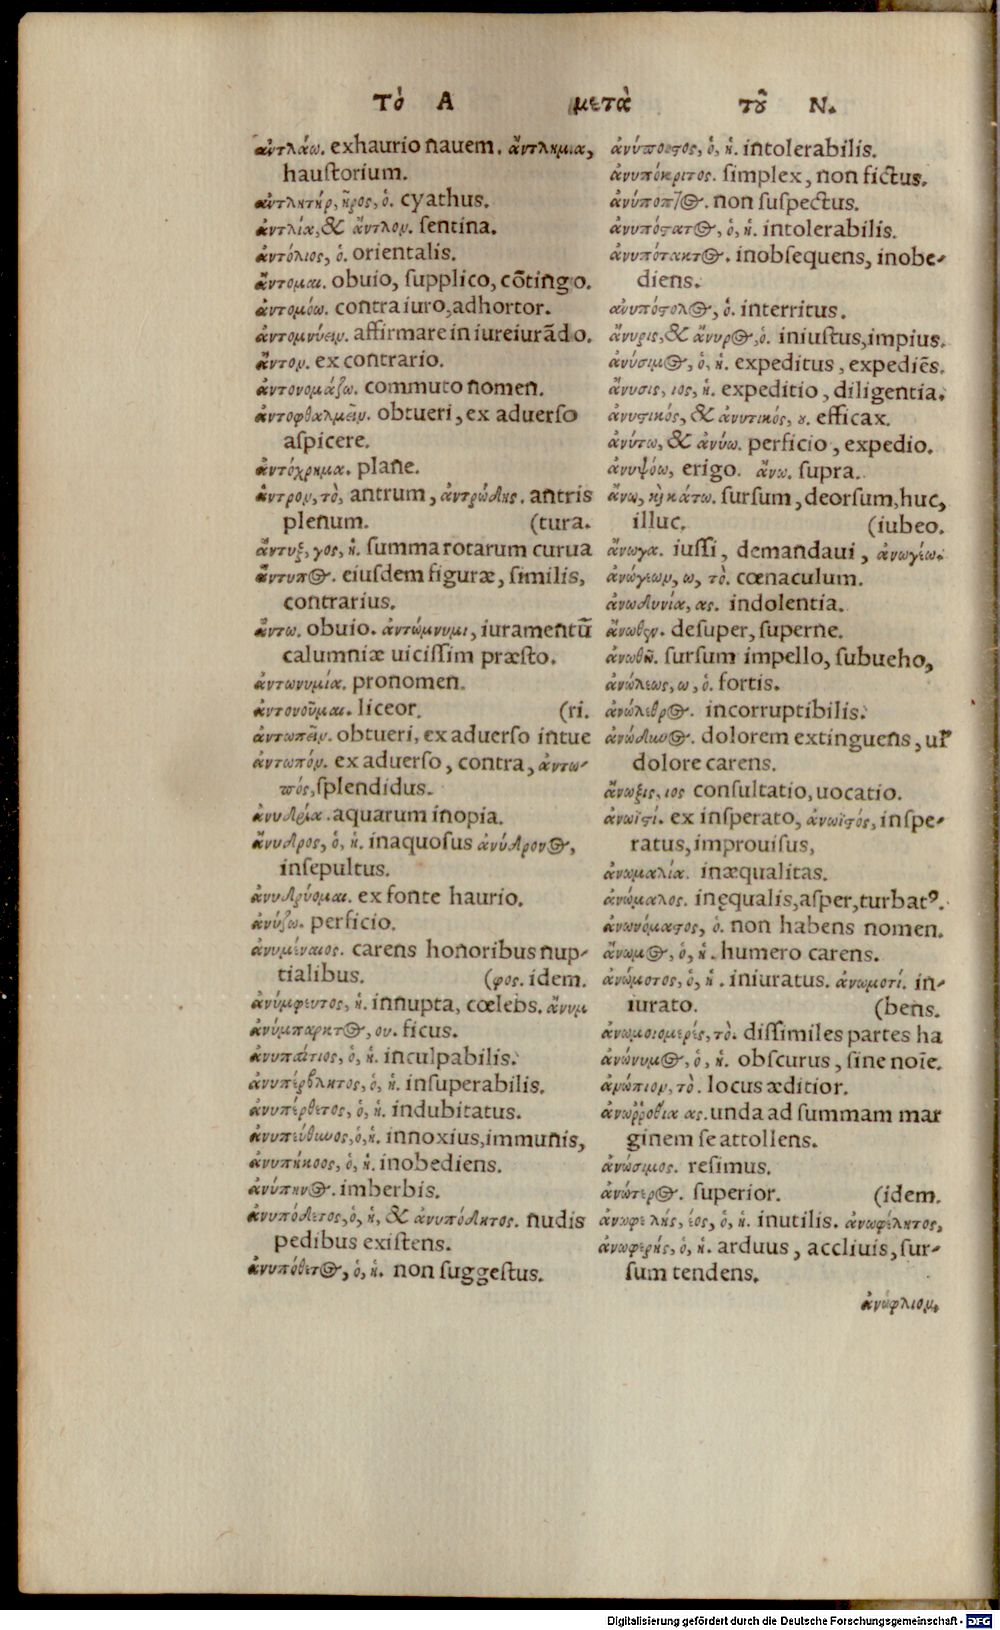 Τὸ Α μετὰ τοῦ Ν.
ἀντλάω. exhaurio nauem. ἄντλημια,
haustorium.
ἀντλητήρ, ῆρος, ὁ. cyathus.
ἀντλία, & ἄντλον. sentina.
ἀντόλιος, ὁ. orientalis.
ἄντομαι. obuio, supplico, cõtingo.
ἀντομόω. contra iuro, adhortor.
ἀντομνύειν. affirmare in iureiurãdo.
ἄντον. ex contrario.
ἀντονομάζω. commuto nomen.
ἀντοφθαλμεῖν. obtueri, ex aduerso
aspicere.
ἀντόχρημα. plane.
ἄντρον, τὸ, antrum, ἀντρώδης. antris
plenum. (tura.
ἄντυξ, γος, ἡ. summa rotarum curua
ἄντυπος. eiusdem figuræ, similis,
contrarius.
ἄντω. obuio. ἀντώμνυμι, iuramentũ
calumniæ uicissim præsto.
ἀντωνυμία. pronomen.
ἀντονοῦμαι. liceor. (ri.
ἀντωπεῖν. obtueri, ex aduerso intue
ἀντωπόν. ex aduerso, contra, ἀντω-
πός, splendidus.
ἀνυδρία. aquarum inopia.
ἄνυδρος, ὁ, ἡ. inaquosus ἀνύδρονος,
insepultus.
ἀνυδρύομαι. ex fonte haurio.
ἀνύζω. perficio.
ἀνυμέναιος. carens honoribus nup-
tialibus. (φος. idem.
ἀνύμφευτος, ἡ. innupta, cœlebs. ἄνυμ
ἀνύμπαρκτος, ου. ficus.
ἀνυπαίτιος, ὁ, ἡ. inculpabilis.
ἀνυπέρβλητος, ὁ, ἡ. insuperabilis.
ἀνυπέρθετος, ὁ, ἡ. indubitatus.
ἀνυπεύθυνος, ὁ, ἡ. innoxius, immunis,
ἀνυπήκοος, ὁ, ἡ. inobediens.
ἀνύπηνος. imberbis.
ἀνυπόδετος, ὁ, ἡ, & ἀνυπόδητος. nudis
pedibus existens.
ἀνυπόθετος, ὁ, ἡ. non suggestus.
ἀνύποιστος, ὁ, ἡ. intolerabilis.
ἀνυπόκριτος. simplex, non fictus.
ἀνύποπτος. non suspectus.
ἀνυπόστατος, ὁ, ἡ. intolerabilis.
ἀνυπότακτος. inobsequens, inobe-
diens.
ἀνυπόστολος, ὁ. interritus.
ἄνυρις, & ἄνυρος, ὁ. iniustus, impius.
ἀνύσιμος, ὁ, ἡ. expeditus, expediẽs.
ἄνυσις, ιος, ἡ. expeditio, diligentia.
ἀνυστικός, & ἀνυτικός, ου. efficax.
ἀνύτω, & ἀνύω. perficio, expedio.
ἀνυψόω, erigo. ἄνω. supra.
ἄνω, καὶ κάτω. sursum, deorsum, huc,
illuc. (iubeo.
ἄνωγα. iussi, demandaui, ἀνωγέω.
ἀνώγεων, ω, τὸ. cœnaculum.
ἀνωδυνία, ας. indolentia.
ἄνωθεν. desuper, superne.
ἀνωθῶ. sursum impello, subueho,
ἀνώλεως, ω, ὁ. fortis.
ἀνώλεθρος. incorruptibilis.
ἀνώδυνος. dolorem extinguens, uł
dolore carens.
ἄνωξις, ιος consultatio, uocatio.
ἀνωϊστί. ex insperato, ἀνωϊστός, inspe-
ratus, improuisus,
ἀνωμαλία. inæqualitas.
ἀνώμαλος. inęqualis, asper, turbatꝰ.
ἀνωνόμαστος, ὁ. non habens nomen.
ἄνωμος, ὁ, ἡ. humero carens.
ἀνώμοτος, ὁ, ἡ. iniuratus. ἀνωμοτί. in-
iurato. (bens.
ἀνωμοιομερές, τὸ. dissimiles partes ha
ἀνώνυμος, ὁ, ἡ. obscurus, sine noĩe.
ἀνώπιον, τὸ. locus æditior.
ἀνωῤῥοθία ας. unda ad summam mar
ginem se attollens.
ἀνώσιμος. resimus.
ἀνώτερος. superior. (idem.
ἀνωφελής, έος, ὁ, ἡ. inutilis. ἀνωφέλητος,
ἀνωφερής, ὁ, ἡ. arduus, accliuis, sur-
sum tendens.
ἀνώφλιον.
Digitalisierung gefördert durch die Deutsche Forschungsgemeinschaft - DFG